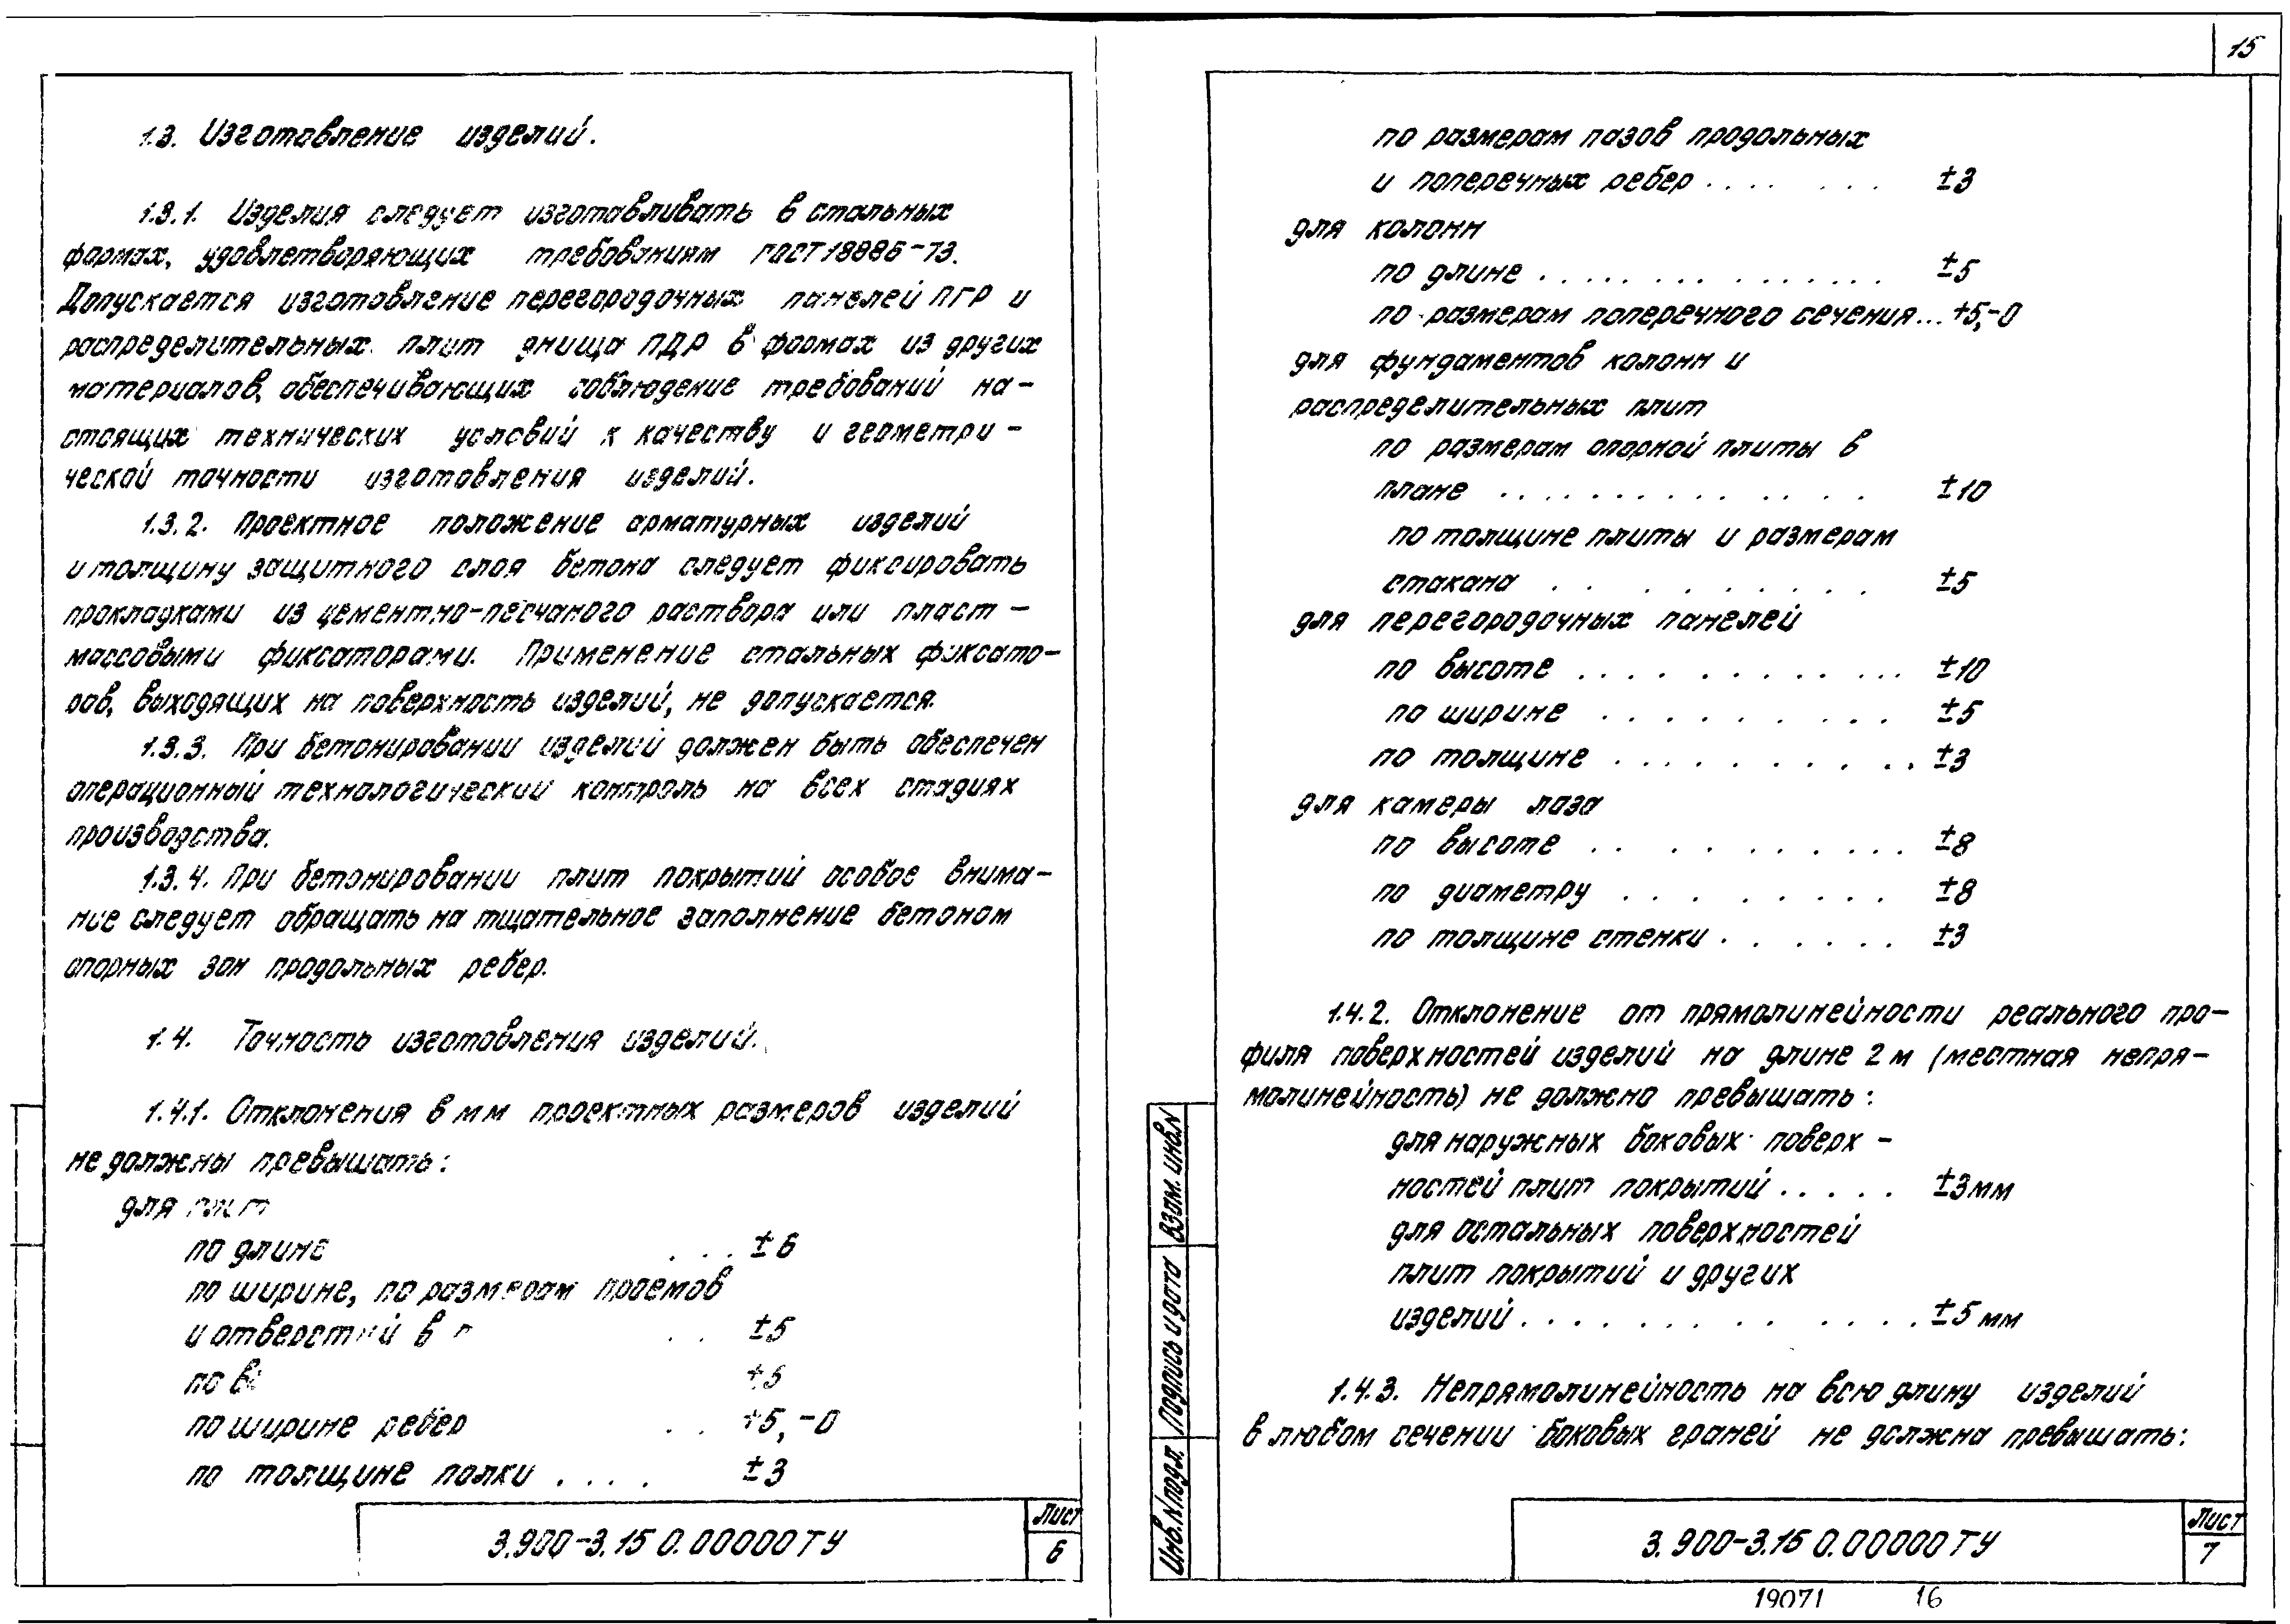 1.3. Изготовление изделий.
1.3.1. Изделия следует изготавливать в стальных
формах, удовлетворяющих требованиям ГОСТ 18886-73.
Допускается изготовление перегородочных панелей ПГР и
распределительных плит днища ПДР в формах из других
материалов, обеспечивающих соблюдение требований на-
стоящих технических условий к качеству и геометри-
ческой точности изготовления изделий.
1.3.2. Проектное положение арматурных изделий
и толщину защитного слоя бетона следует фиксировать
прокладками из цементно-песчаного раствора или пласт-
массовыми фиксаторами. Применение стальных фиксато-
ров, выходящих на поверхность изделий, не допускается.
1.3.3. При бетонировании изделий должен быть обеспечен
операционный технологический контроль на всех стадиях
производства.
1.3.4. При бетонировании плит покрытий особое внима-
ние следует обращать на тщательное заполнение бетоном
опорных зон продольных ребер.
1.4. Точность изготовления изделий.
1.4.1. Отклонения в мм проектных размеров изделий
не должны превышать:
для плит
по длине ... ±6
по ширине, по размерам проемов
и отверстий в .. ±5
по ±5
по ширине ребер .. +5,-0
по толщине полки .... ±3
3.900-3.15 0.00000ТУ
Лист
6
15
по размерам пазов продольных
и поперечных ребер .... ... ±3
для колонн
по длине ............... ±5
по размерам поперечного сечения... +5,-0
для фундаментов колонн и
распределительных плит
по размерам опорной плиты в
плане ............. ±10
по толщине плиты и размерам
стакана .......... ±5
для перегородочных панелей
по высоте ............ ±10
по ширине .......... ±5
по толщине ........... ±3
для камеры лаза
по высоте ........... ±8
по диаметру ......... ±8
по толщине стенки ....... ±3
1.4.2. Отклонение от прямолинейности реального про-
филя поверхностей изделий на длине 2 м (местная непря-
молинейность) не должно превышать:
для наружных боковых поверх-
ностей плит покрытий ..... ±3мм
для остальных поверхностей
плит покрытий и других
изделий ............ ±5 мм
1.4.3. Непрямолинейность на всю длину изделий
в любом сечении боковых граней не должна превышать:
Взам. инв.N
Подпись и дата
Инв.N подл.
3.900-3.15 0.00000ТУ
Лист
7
19071 16